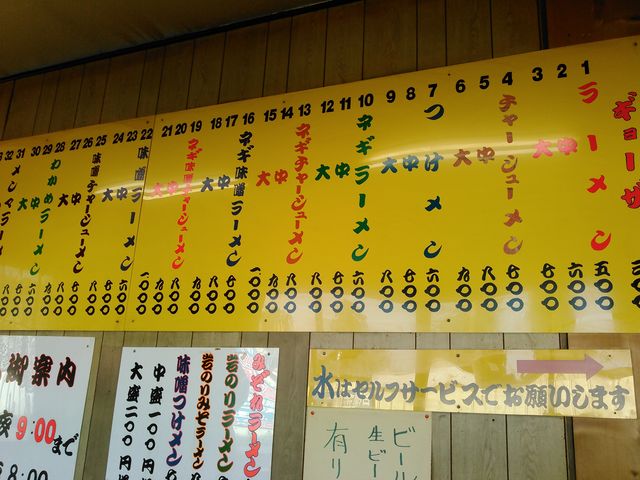 ギョーザ
1 ラーメン 五〇〇
2 中 六〇〇
3 大 七〇〇
4 チャーシューメン 七〇〇
5 中 八〇〇
6 大 九〇〇
7 つけメン 六〇〇
8 中 七〇〇
9 大 八〇〇
10 ネギラーメン 七〇〇
11 中 八〇〇
12 大 九〇〇
13 ネギチャーシューメン 八〇〇
14 中 九〇〇
15 大 一〇〇〇
16 ネギ味噌ラーメン
17 中
18 大
19 ネギ味噌チャーシューメン
20 中
21 大
22 味噌ラーメン
23 中
24 大
25 味噌チャーシューメン
26 中
27 大
28 わかめラーメン
29 中
30 大
31 メンマラーメン
32
水はセルフサービスでお願いします
ビール
生ビー
有り
みそれラーメン
岩のりラーメン
岩のりみそラーメン
味噌つけメン
中盛一〇〇円
大盛二〇〇円
御案内
9:00まで
8:00